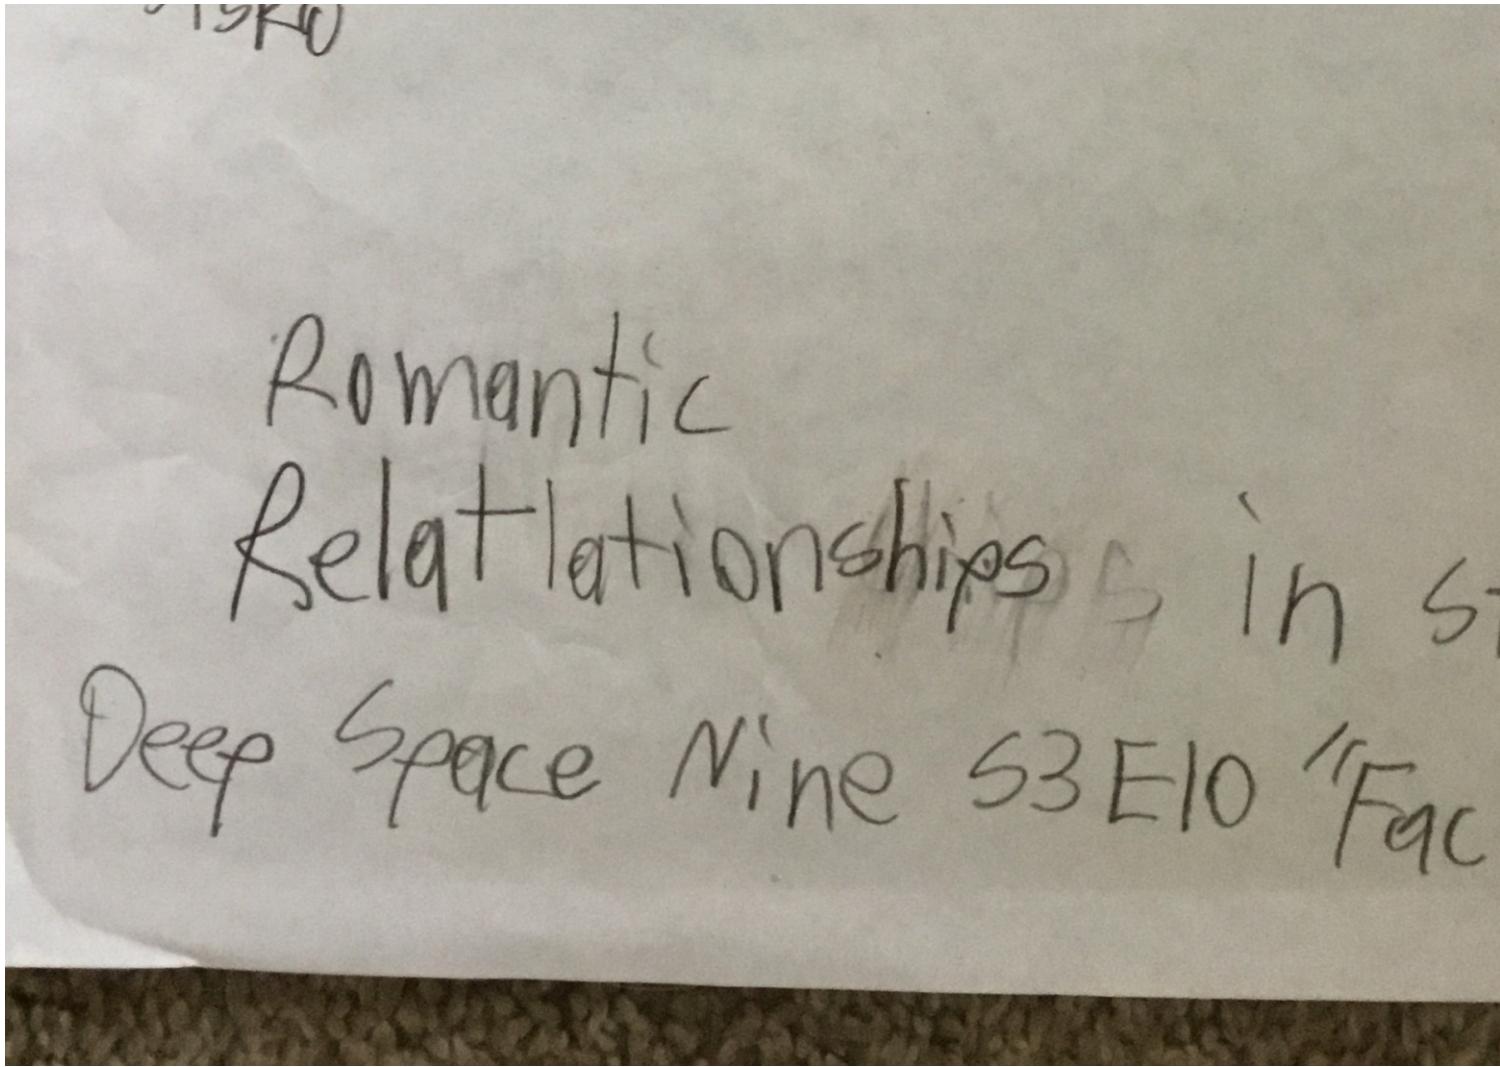 Romantic
Relatlationships in st
Deep Space Nine S3E10 "Fac